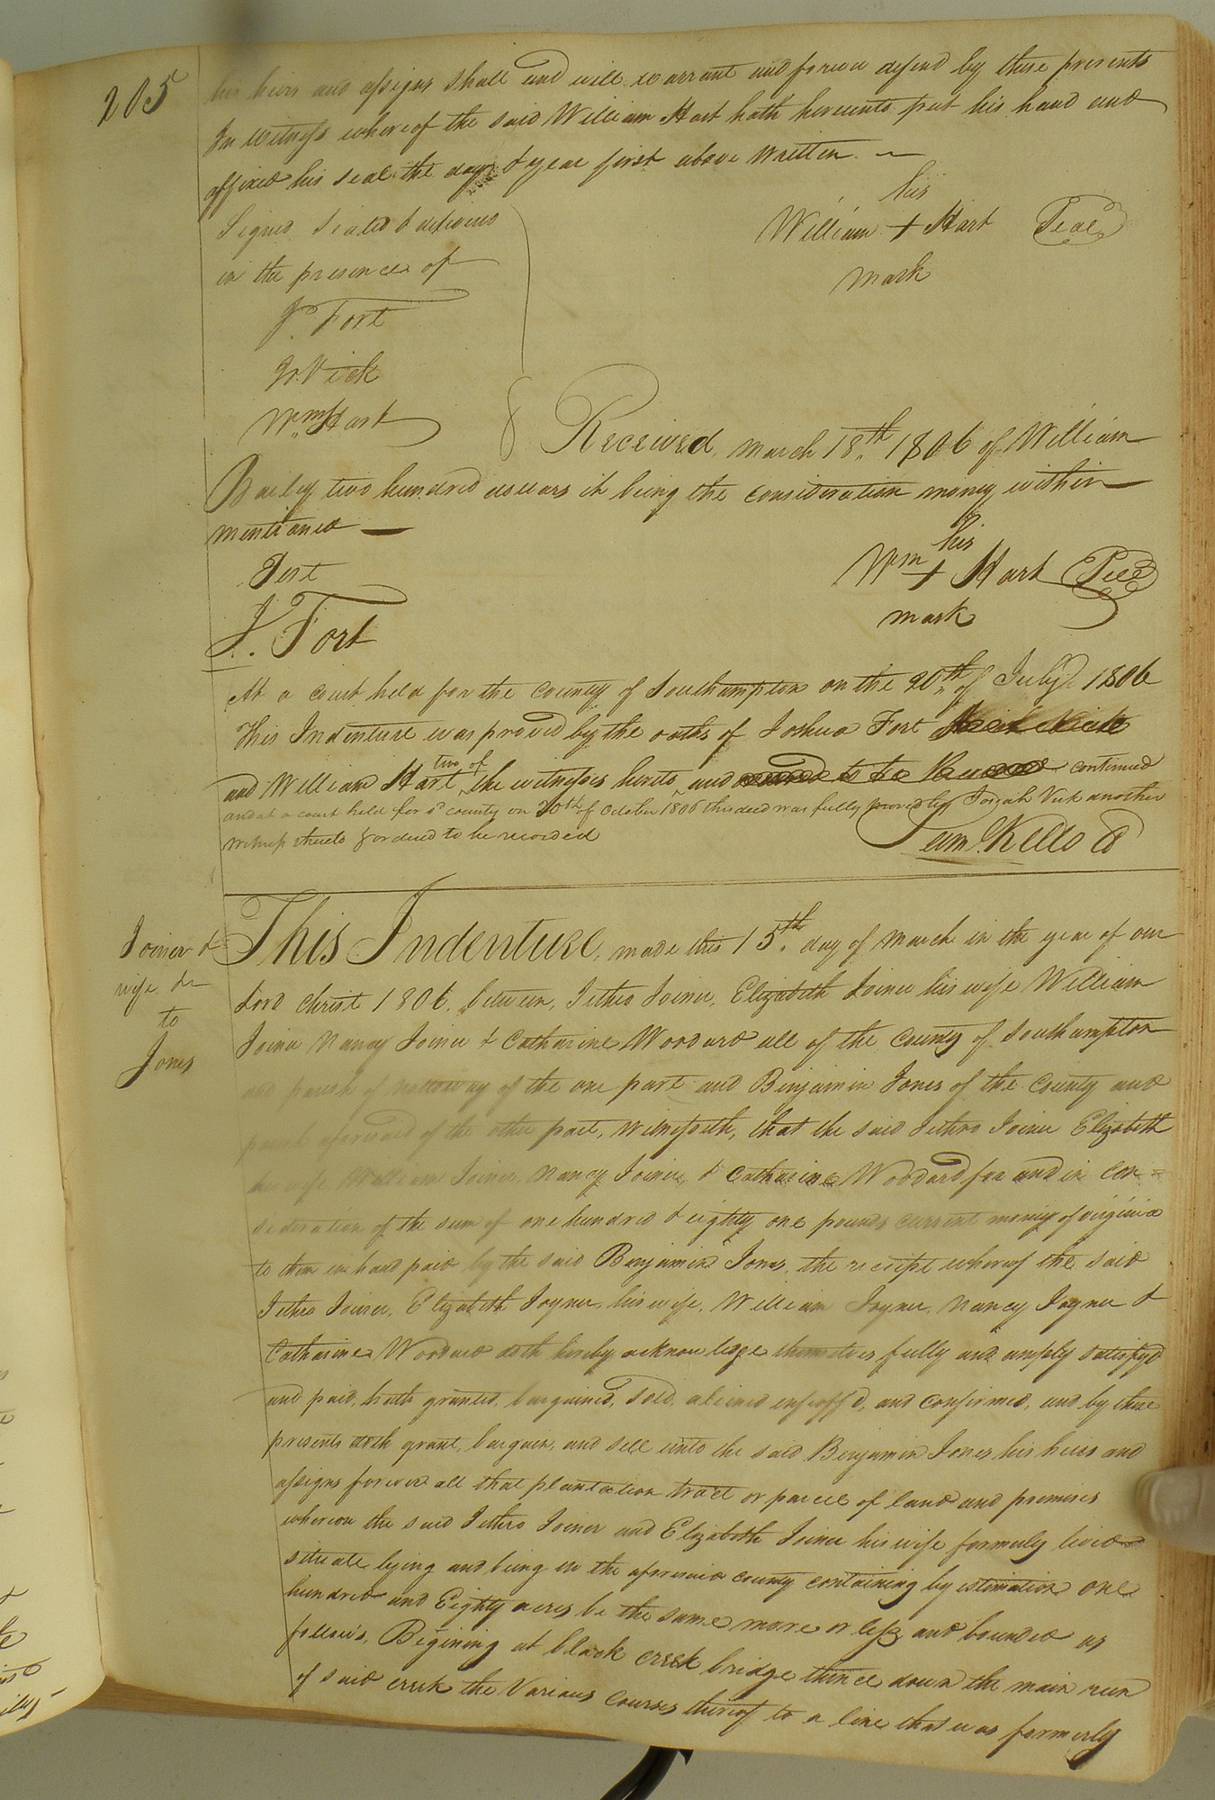 205
his heirs and assigns shall and will warrant and forever defend by these presents
In witness whereof the said William Hart hath hereunto put his hand and
affixed his seal the day & year first above written
his
William + Hart Seal
mark
Signed Sealed & delivered
in the presence of
J. Fort
Jo. Vick
Wm. Hart
Received march 18th 1806 of William
Bailey two hundred dollars it being the consideration money within
mentioned
his
Wm + Hart Seal
mark
Test
J. Fort
At a court held for the county of Southampton on the 20th of July 1806
This Indenture was proved by the oaths of Joshua Fort
and William Hart two of the witnesses hereto and continued
and at a court held for sd county on 20th of October 1806 this deed was fully proved by Josiah Vick another
witness thereto & ordered to be recorded
Sam. Kello C
Joiner &
wife &c
to
Jones
This Indenture, made this 15th day of March in the year of our
Lord Christ 1806. between, Jethro Joiner, Elizabeth Joiner his wife William
Joiner Nancy Joiner & Catharine Woodard all of the County of Southampton
and parish of nottoway of the one part and Benjamin Jones of the County and
parish aforesaid of the other part, Witnesseth, that the said Jethro Joiner Elizabeth
his wife William Joiner Nancy Joiner & Catharine Woodard for and in con=
sederation of the sum of one hundred & eighty one pounds current money of virginia
to them in hand paid by the said Benjamin Jones, the receipt whereof the said
Jethro Joiner, Elizabeth Joyner his wife, William Joyner, Nancy Joyner &
Catharine Woodard doth hereby acknowledge themselves fully and amply satisfyd
and paid, hath granted, bargained, Sold, aliened enfeoff'd, and confirmed, and by these
presents doth grant, bargain, and sell unto the said Benjamin Jones his heirs and
assigns forever all that plantation tract or parcel of land and premises
whereon the said Jethro Joiner and Elizabeth Joiner his wife formerly lived
situate lying and being in the aforesaid county containing by estimation one
hundred and Eighty acres be the same more or less and bounded as
follows, Begining at black creek bridge thence down the main run
of said creek the Various courses thereof to a line that was formerly